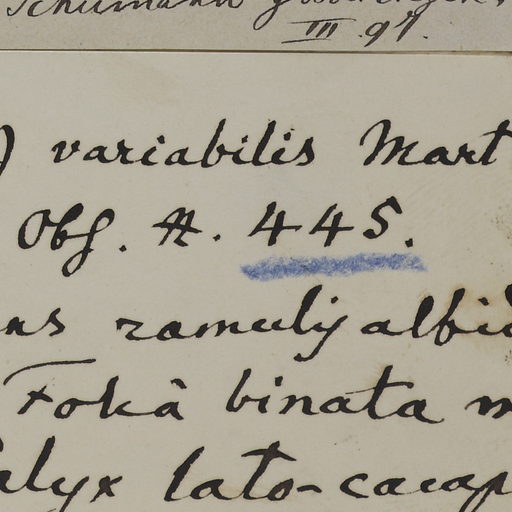 Schumann
III. 97.
) variabilis Mart
Obs. A. 445.
ns ramulis albid
Foliâ binata m
alyx lato-camp